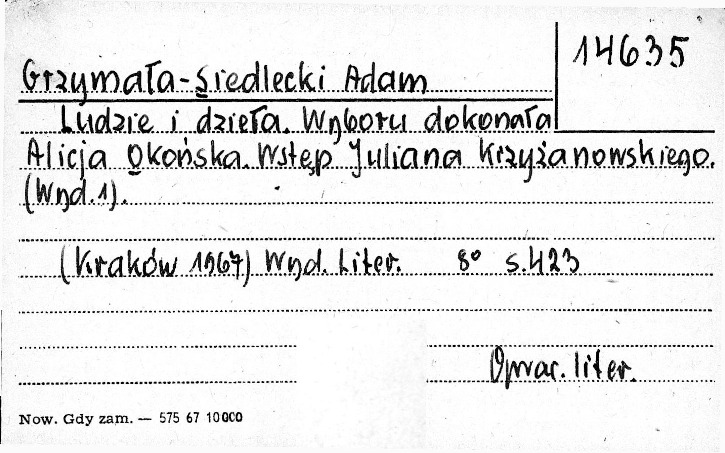 14635
Grzymała-Siedlecki Adam
Ludzie i dzieła. Wyboru dokonała
Alicja Okońska. Wstęp Juliana Krzyżanowskiego.
(Wyd. 1).
(Kraków 1967) Wyd. Liter. 8° s. 423
Oprac. liter.
Now. Gdy zam. — 575 67 10000